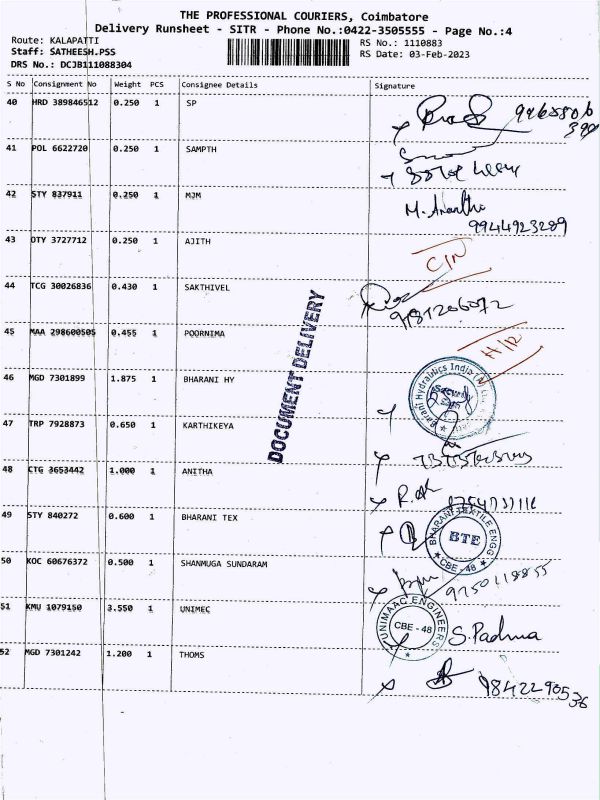 THE PROFESSIONAL COURIERS, Coimbatore
Delivery Runsheet - SITR - Phone No.:0422-3505555 - Page No.:4
Route: KALAPATTI
RS No.: 1110883
Staff: SATHEESH.PSS
RS Date: 03-Feb-2023
DRS No.: DCJB111088304
S No Consignment No Weight PCS Consignee Details Signature
40 HRD 389846512 0.250 1 SP
41 POL 6622720 0.250 1 SAMPTH
42 STY 837911 0.250 1 MJM
M. Anantha
9944923289
43 OTY 3727712 0.250 1 AJITH
C/N
44 TCG 30026836 0.430 1 SAKTHIVEL
9781206072
45 MAA 298600505 0.455 1 POORNIMA
H/R
DOCUMENT DELIVERY
46 MGD 7301899 1.875 1 BHARANI HY
47 TRP 7928873 0.650 1 KARTHIKEYA
48 CTG 3653442 1.000 1 ANITHA
49 STY 840272 0.600 1 BHARANI TEX
BHARANI TEXTILE ENGG
BTE
CBE - 48
50 KOC 60676372 0.500 1 SHANMUGA SUNDARAM
9750118855
51 KMU 1079150 3.550 1 UNIMEC
UNIMAAC ENGINEERS
CBE - 48
S. Padma
52 MGD 7301242 1.200 1 THOMS
9842290536